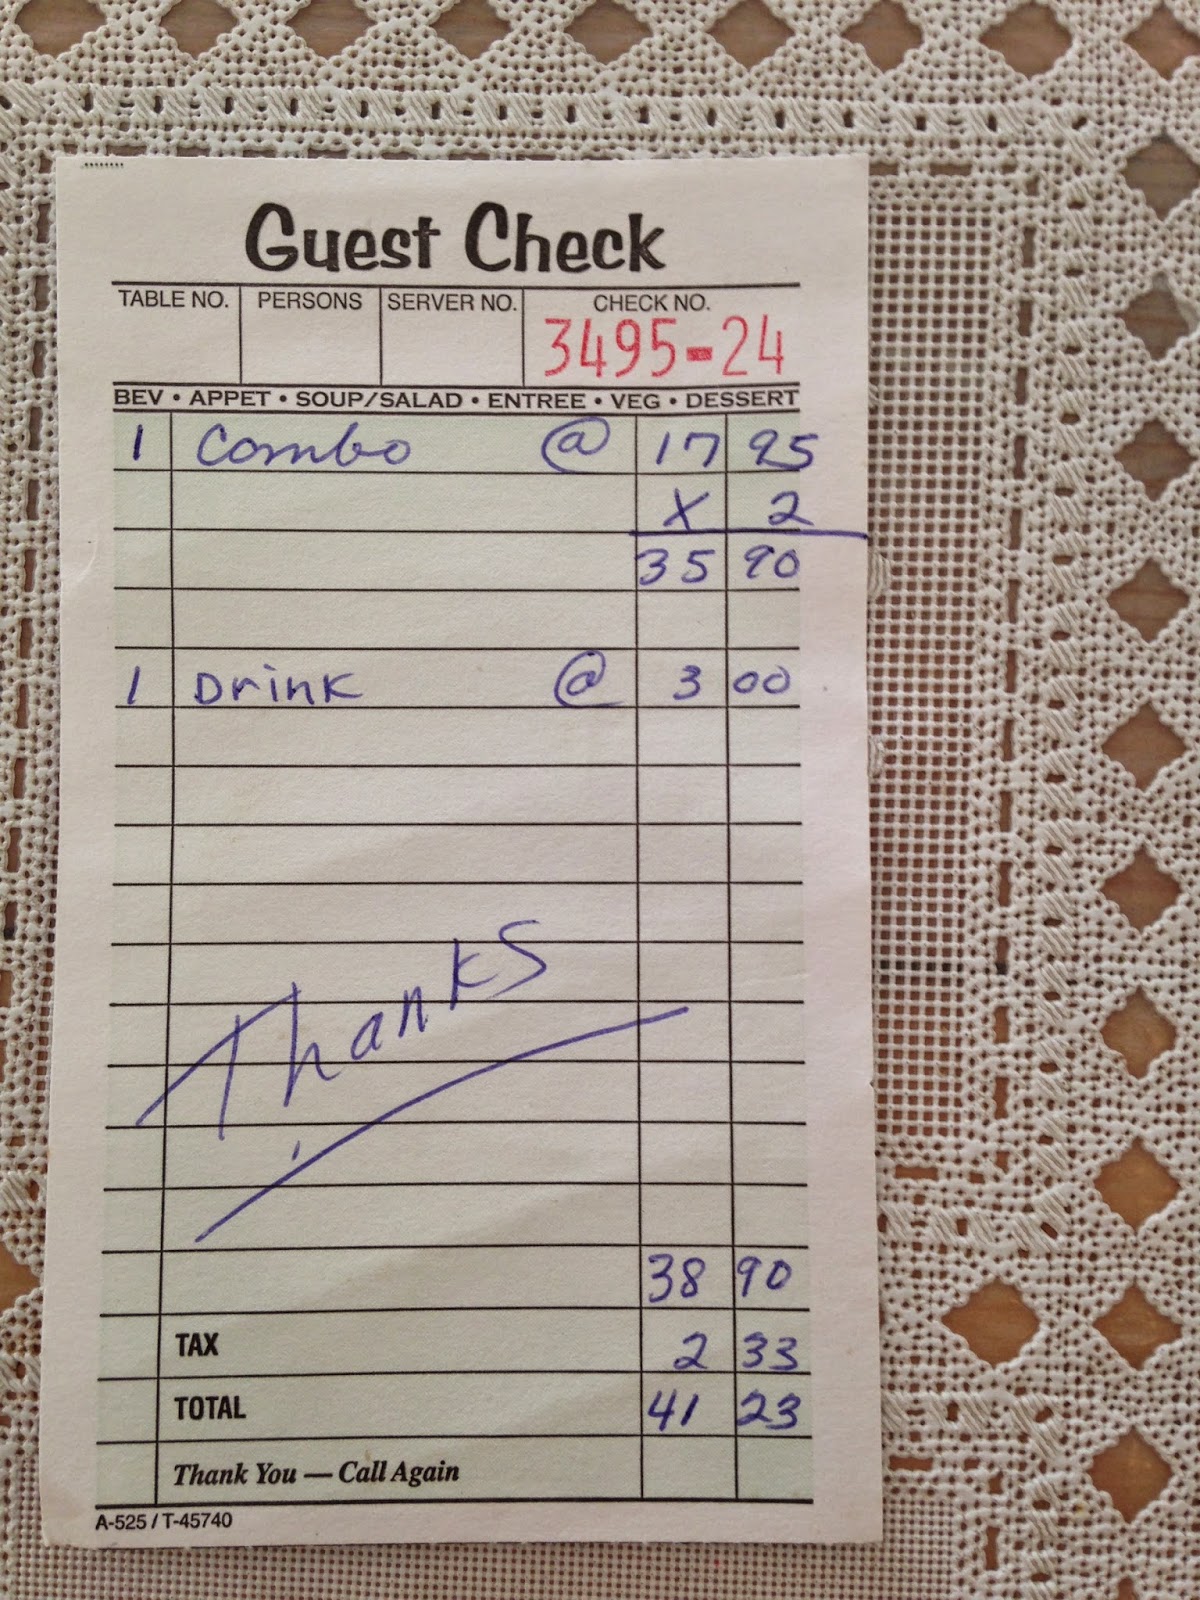 Guest Check
TABLE NO. PERSONS SERVER NO. CHECK NO.
3495-24
BEV • APPET • SOUP/SALAD • ENTREE • VEG • DESSERT
1 Combo @ 17 95
X 2
35 90
1 Drink @ 3 00
Thanks
38 90
TAX 2 33
TOTAL 41 23
Thank You — Call Again
A-525 / T-45740